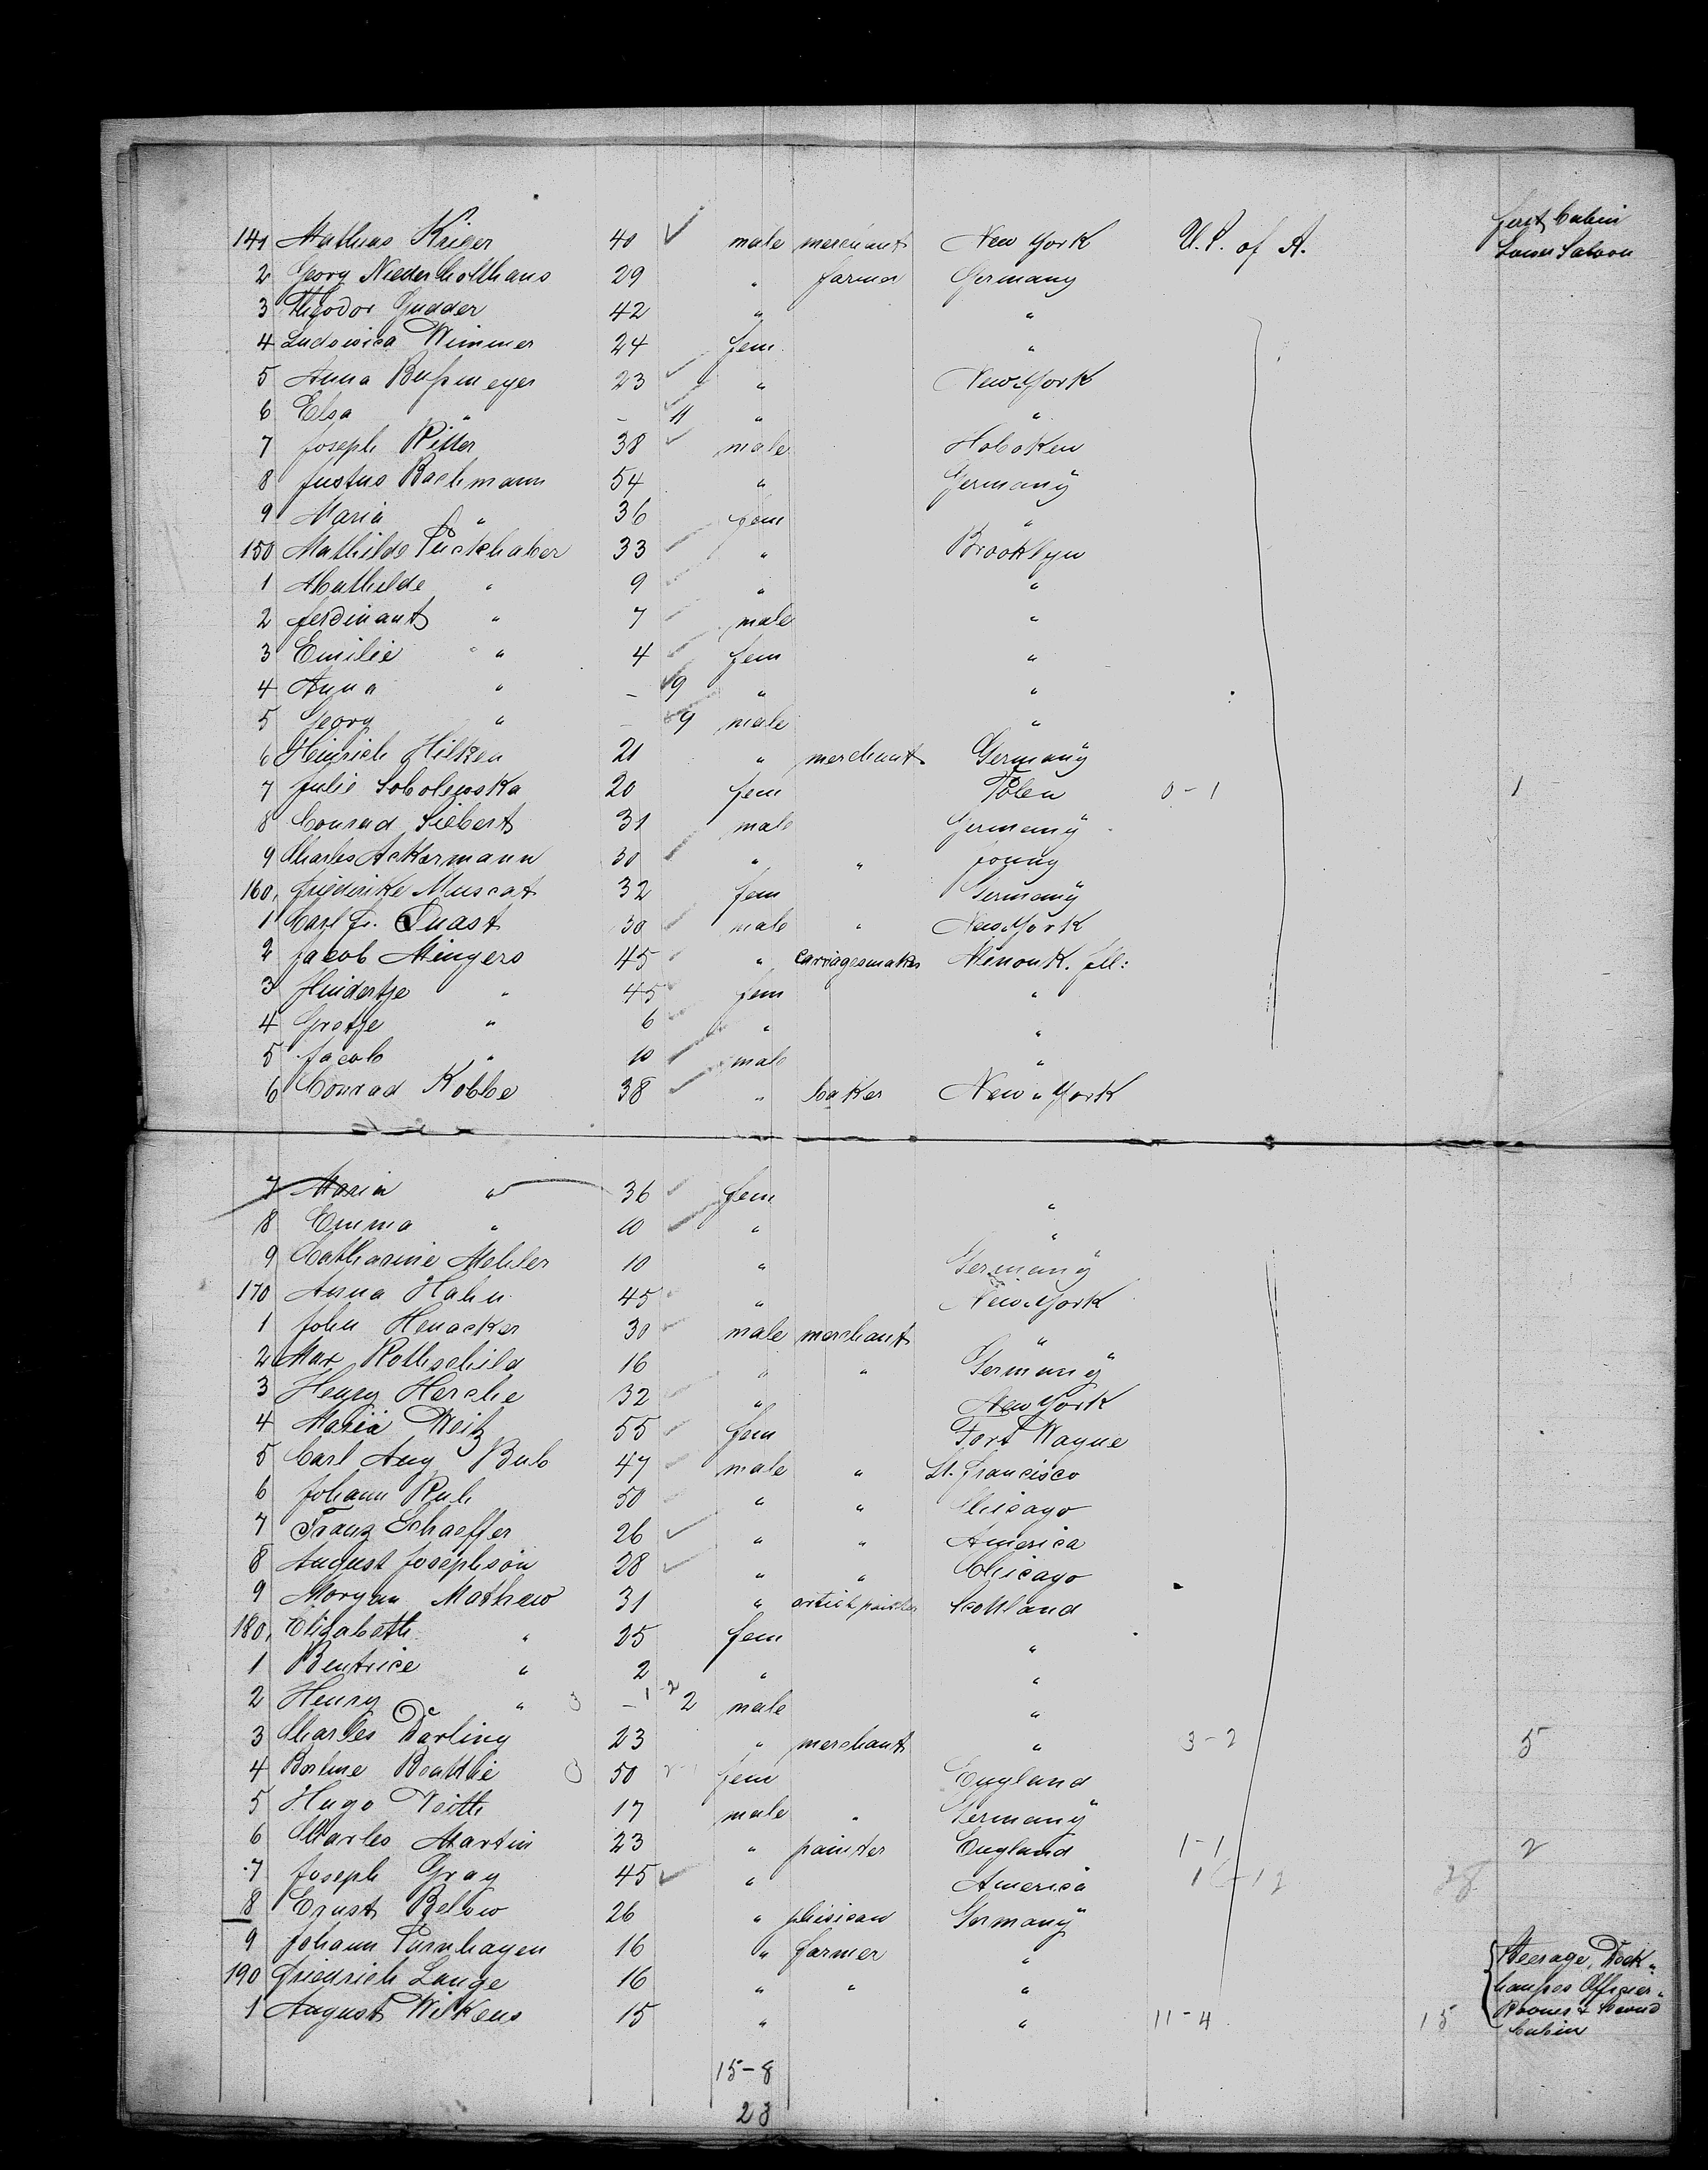 first Cabin
141 Mathias Krieer 40 ✓ male merchant New York U.S. of A. Lower Saloon
2 Georg Niederholthaus 29 " farmer Germany
3 Theodor Gudder 42 " "
4 Ludowica Wimmer 24 fem "
5 Anna Bußmeyer 23 ✓ " New York
6 Elsa " - 11 " "
7 Joseph Ritter 38 ✓ male Hoboken
8 Justus Bachmann 54 " Germany
9 Maria " 36 fem "
150 Mathilde Puckhaber 33 ✓ " Brooklyn
1 Mathilde " 9 ✓ " "
2 Ferdinant " 7 ✓ male "
3 Emilie " 4 ✓ fem "
4 Anna " - 9 " "
5 Georg " - 9 male "
6 Heinrich Hilken 21 " merchant Germany
7 Julie Sobolewska 20 fem Polen 0-1 1
8 Conrad Siebert 31 male Germany
9 Charles Ackermann 30 ✓ " "
160, Friederike Muscat 32 fem Germany
1 Carl Fr. Quast 30 ✓ male " New York
2 Jacob Mingers 45 ✓ " carriagesmaker Menonk. Ill:
3 Hindertje " 45 ✓ fem "
4 Gretje " 6 ✓ " "
5 Jacob " 10 ✓ male "
6 Conrad Kobbe 38 ✓ " baker New York
7 Maria " 36 ✓ fem "
8 Emma " 10 ✓ " "
9 Catharine Mehler 10 " Germany
170 Anna Hahn 45 ✓ " New York
1 John Henacker 30 ✓ male merchant "
2 Max Rothschild 16 " " Germany
3 Henry Herche 32 ✓ " New York
4 Maria Weitz 55 ✓ fem Fort Wayne
5 Carl Aug Bub 47 ✓ male " St. Francisco
6 Johann Ruh 50 ✓ " " Chicago
7 Franz Schaeffer 26 ✓ " " America
8 August Josephson 28 ✓ " " Chicago
9 Morgan Mathew 31 " Scottland
180, Elisabeth " 25 fem "
1 Beatrice " 2 " "
2 Henry " - 2 male "
3 Charles Darling 23 " merchant " 3-2 5
4 Beattie 50 fem England
5 Hugo Veith 17 male " Germany
6 Charles Martin 23 " painter England 1-1 2
7 Joseph Gray 45 ✓ " America 28
8 Ernst Below 26 " phisican Germany
9 Johann Purnhagen 16 " farmer "
190 Friedrich Lange 16 " " "
1 August Wilkens 15 " " 11-4 15
Steerage, Deck-
houses Officier-
Rooms & Second
Cabin
15-8
23